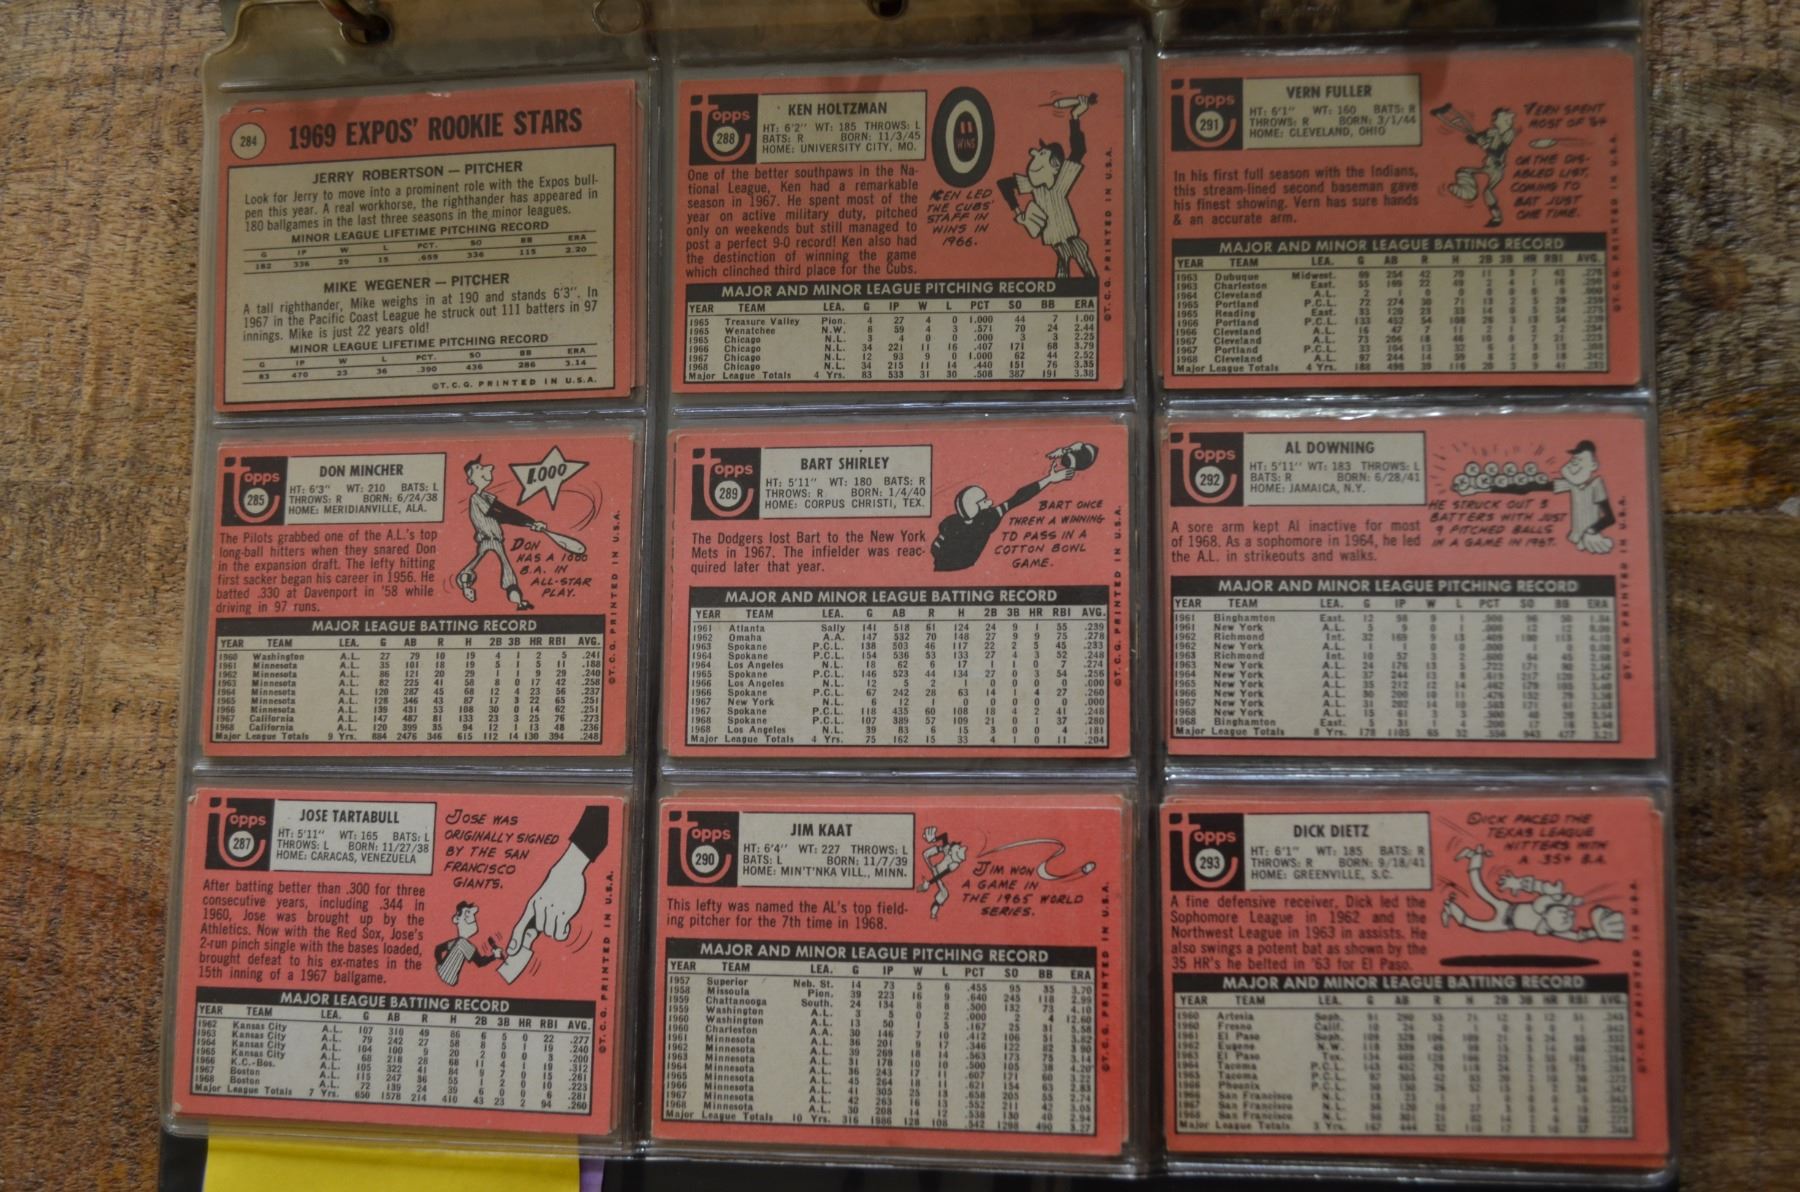 284
1969 EXPOS' ROOKIE STARS
JERRY ROBERTSON — PITCHER
Look for Jerry to move into a prominent role with the Expos bull-
pen this year. A real workhorse, the righthander has appeared in
180 ballgames in the last three seasons in the minor leagues.
MINOR LEAGUE LIFETIME PITCHING RECORD
G IP W L PCT. SO BB ERA
182 336 29 15 .659 336 115 2.20
MIKE WEGENER — PITCHER
A tall righthander, Mike weighs in at 190 and stands 6'3". In
1967 in the Pacific Coast League he struck out 111 batters in 97
innings. Mike is just 22 years old!
MINOR LEAGUE LIFETIME PITCHING RECORD
G IP W L PCT. SO BB ERA
83 470 23 36 .390 436 286 3.14
©T.C.G. PRINTED IN U.S.A.
Topps
288
KEN HOLTZMAN
HT: 6'2" WT: 185 THROWS: L
BATS: R BORN: 11/3/45
HOME: UNIVERSITY CITY, MO.
One of the better southpaws in the Na-
tional League, Ken had a remarkable
season in 1967. He spent most of the
year on active military duty, pitched
only on weekends but still managed to
post a perfect 9-0 record! Ken also had
the distinction of winning the game
which clinched third place for the Cubs.
11 WINS
KEN LED
THE CUBS'
STAFF IN
WINS IN
1966.
MAJOR AND MINOR LEAGUE PITCHING RECORD
YEAR TEAM LEA. G IP W L PCT SO BB ERA
1965 Treasure Valley Pion. 4 27 4 0 1.000 44 7 1.00
1965 Wenatchee N.W. 8 59 4 3 .571 70 24 2.44
1965 Chicago N.L. 3 4 0 0 .000 3 3 2.25
1966 Chicago N.L. 34 221 11 16 .407 171 68 3.79
1967 Chicago N.L. 12 93 9 0 1.000 62 44 2.52
1968 Chicago N.L. 34 215 11 14 .440 151 76 3.35
Major League Totals 4 Yrs. 83 533 31 30 .508 387 191 3.38
©T.C.G. PRINTED IN U.S.A.
Topps
291
VERN FULLER
HT: 6'1" WT: 160 BATS: R
THROWS: R BORN: 3/1/44
HOME: CLEVELAND, OHIO
In his first full season with the Indians,
this stream-lined second baseman gave
his finest showing. Vern has sure hands
& an accurate arm.
VERN SPENT
MOST OF '64
ON THE DIS-
ABLED LIST,
COMING TO
BAT JUST
ONE TIME.
MAJOR AND MINOR LEAGUE BATTING RECORD
YEAR TEAM LEA. G AB R H 2B 3B HR RBI AVG.
1963 Dubuque Midwest.
1963 Charleston East.
1964 Cleveland A.L.
1965 Portland P.C.L.
1965 Reading East.
1966 Portland P.C.L.
1966 Cleveland A.L.
1967 Cleveland A.L.
1967 Portland P.C.L.
1968 Cleveland A.L. 97 244 14 59
Major League Totals 4 Yrs. 188 498 39 116
©T.C.G. PRINTED IN U.S.A.
Topps
285
DON MINCHER
HT: 6'3" WT: 210 BATS: L
THROWS: R BORN: 6/24/38
HOME: MERIDIANVILLE, ALA.
The Pilots grabbed one of the A.L.'s top
long-ball hitters when they snared Don
in the expansion draft. The lefty hitting
first sacker began his career in 1956. He
batted .330 at Davenport in '58 while
driving in 97 runs.
1.000
DON
HAS A 1000
B.A. IN
ALL-STAR
PLAY.
MAJOR LEAGUE BATTING RECORD
YEAR TEAM LEA. G AB R H 2B 3B HR RBI AVG.
1960 Washington A.L. 27 79 10 19 4 1 2 5 .241
1961 Minnesota A.L. 35 101 18 19 5 1 5 11 .188
1962 Minnesota A.L. 86 121 20 29 1 1 9 29 .240
1963 Minnesota A.L. 82 225 41 58 8 0 17 42 .258
1964 Minnesota A.L. 120 287 45 68 12 4 23 56 .237
1965 Minnesota A.L. 128 346 43 87 17 3 22 65 .251
1966 Minnesota A.L. 139 431 53 108 30 0 14 62 .251
1967 California A.L. 147 487 81 133 23 3 25 76 .273
1968 California A.L. 120 399 35 94 12 1 13 48 .236
Major League Totals 9 Yrs. 884 2476 346 615 112 14 130 394 .248
©T.C.G. PRINTED IN U.S.A.
Topps
289
BART SHIRLEY
HT: 5'11" WT: 180 BATS: R
THROWS: R BORN: 1/4/40
HOME: CORPUS CHRISTI, TEX.
The Dodgers lost Bart to the New York
Mets in 1967. The infielder was reac-
quired later that year.
BART ONCE
THREW A WINNING
TD PASS IN A
COTTON BOWL
GAME.
MAJOR AND MINOR LEAGUE BATTING RECORD
YEAR TEAM LEA. G AB R H 2B 3B HR RBI AVG.
1961 Atlanta Sally 141 518 61 124 24 9 1 55 .239
1962 Omaha A.A. 147 532 70 148 27 9 9 75 .278
1963 Spokane P.C.L. 138 503 46 117 22 2 5 45 .233
1964 Spokane P.C.L. 154 536 53 133 27 4 3 52 .248
1964 Los Angeles N.L. 18 62 6 17 1 1 0 7 .274
1965 Spokane P.C.L. 146 523 44 134 27 0 3 54 .256
1966 Los Angeles N.L. 12 5 2 1 0 0 0 0 .000
1966 Spokane P.C.L. 67 242 28 63 14 1 4 27 .260
1967 New York N.L. 6 12 1 0 0 0 0 0 .000
1967 Spokane P.C.L. 118 435 60 108 18 4 2 41 .248
1968 Spokane P.C.L. 107 389 57 109 21 0 1 37 .280
1968 Los Angeles N.L. 39 83 6 15 3 0 0 4 .181
Major League Totals 4 Yrs. 75 162 15 33 4 1 0 11 .204
©T.C.G. PRINTED IN U.S.A.
Topps
292
AL DOWNING
HT: 5'11" WT: 183 THROWS: L
BATS: R BORN: 6/28/41
HOME: JAMAICA, N.Y.
A sore arm kept Al inactive for most
of 1968. As a sophomore in 1964, he led
the A.L. in strikeouts and walks.
HE STRUCK OUT 3
BATTERS WITH JUST
9 PITCHED BALLS
IN A GAME IN 1967.
MAJOR AND MINOR LEAGUE PITCHING RECORD
YEAR TEAM LEA. G IP W L PCT SO BB ERA
1961 Binghamton East.
1961 New York A.L.
1962 Richmond Int.
1962 New York A.L.
1963 Richmond Int.
1963 New York A.L.
1964 New York A.L.
1965 New York A.L.
1966 New York A.L.
1967 New York A.L.
1968 New York A.L.
1968 Binghamton East.
Major League Totals 8 Yrs. 178 1105 65
©T.C.G. PRINTED IN U.S.A.
Topps
287
JOSE TARTABULL
HT: 5'11" WT: 165 BATS: L
THROWS: L BORN: 11/27/38
HOME: CARACAS, VENEZUELA
After batting better than .300 for three
consecutive years, including .344 in
1960, Jose was brought up by the
Athletics. Now with the Red Sox, Jose's
2-run pinch single with the bases loaded,
brought defeat to his ex-mates in the
15th inning of a 1967 ballgame.
JOSE WAS
ORIGINALLY SIGNED
BY THE SAN
FRANCISCO
GIANTS.
MAJOR LEAGUE BATTING RECORD
YEAR TEAM LEA. G AB R H 2B 3B HR RBI AVG.
1962 Kansas City A.L. 107 310 49 86 6 5 0 22 .277
1963 Kansas City A.L. 79 242 27 58 8 5 1 19 .240
1964 Kansas City A.L. 104 100 9 20 2 0 0 3 .200
1965 Kansas City A.L. 68 218 28 68 11 4 1 19 .312
1966 K.C.-Bos. A.L. 105 322 41 84 9 7 0 15 .261
1967 Boston A.L. 115 247 36 55 1 2 0 10 .223
1968 Boston A.L. 72 139 24 39 6 0 0 6 .281
Major League Totals 7 Yrs. 650 1578 214 410 43 23 2 94 .260
©T.C.G. PRINTED IN U.S.A.
Topps
290
JIM KAAT
HT: 6'4" WT: 227 THROWS: L
BATS: L BORN: 11/7/39
HOME: MIN'T'NKA VILL., MINN.
This lefty was named the AL's top field-
ing pitcher for the 7th time in 1968.
JIM WON
A GAME IN
THE 1965 WORLD
SERIES.
MAJOR AND MINOR LEAGUE PITCHING RECORD
YEAR TEAM LEA. G IP W L PCT SO BB ERA
1957 Superior Neb. St. 14 73 5 6 .455 95 35 3.70
1958 Missoula Pion. 39 223 16 9 .640 245 118 2.99
1959 Chattanooga South. 24 134 8 8 .500 132 73 4.10
1959 Washington A.L. 3 5 0 2 .000 2 4 12.60
1960 Washington A.L. 13 50 1 5 .167 25 31 5.58
1960 Charleston A.A. 30 146 7 10 .412 106 51 3.82
1961 Minnesota A.L. 36 201 9 17 .346 122 82 3.90
1962 Minnesota A.L. 39 269 18 14 .563 173 75 3.14
1963 Minnesota A.L. 31 178 10 10 .500 105 38 4.20
1964 Minnesota A.L. 36 243 17 11 .607 171 60 3.22
1965 Minnesota A.L. 45 264 18 11 .621 154 63 2.83
1966 Minnesota A.L. 41 305 25 13 .658 205 55 2.74
1967 Minnesota A.L. 42 263 16 13 .552 211 42 3.05
1968 Minnesota A.L. 30 208 14 12 .538 130 40 2.94
Major League Totals 10 Yrs. 316 1986 128 108 .542 1298 490 3.27
©T.C.G. PRINTED IN U.S.A.
Topps
293
DICK DIETZ
HT: 6'1" WT: 185 BATS: R
THROWS: R BORN: 9/18/41
HOME: GREENVILLE, S.C.
A fine defensive receiver, Dick led the
Sophomore League in 1962 and the
Northwest League in 1963 in assists. He
also swings a potent bat as shown by the
35 HR's he belted in '63 for El Paso.
DICK PACED THE
TEXAS LEAGUE
HITTERS WITH
A .354 B.A.
MAJOR AND MINOR LEAGUE BATTING RECORD
YEAR TEAM LEA. G AB R H 2B 3B HR RBI AVG.
1960 Artesia Soph.
1960 Fresno Calif.
1961 El Paso Soph.
1962 Eugene N.W.
1963 El Paso Tex.
1964 Tacoma P.C.L.
Tacoma P.C.L.
1966 Phoenix P.C.L.
San Francisco N.L.
1967 San Francisco N.L.
1968 San Francisco N.L.
Major League Totals 3 Yrs.
©T.C.G. PRINTED IN U.S.A.